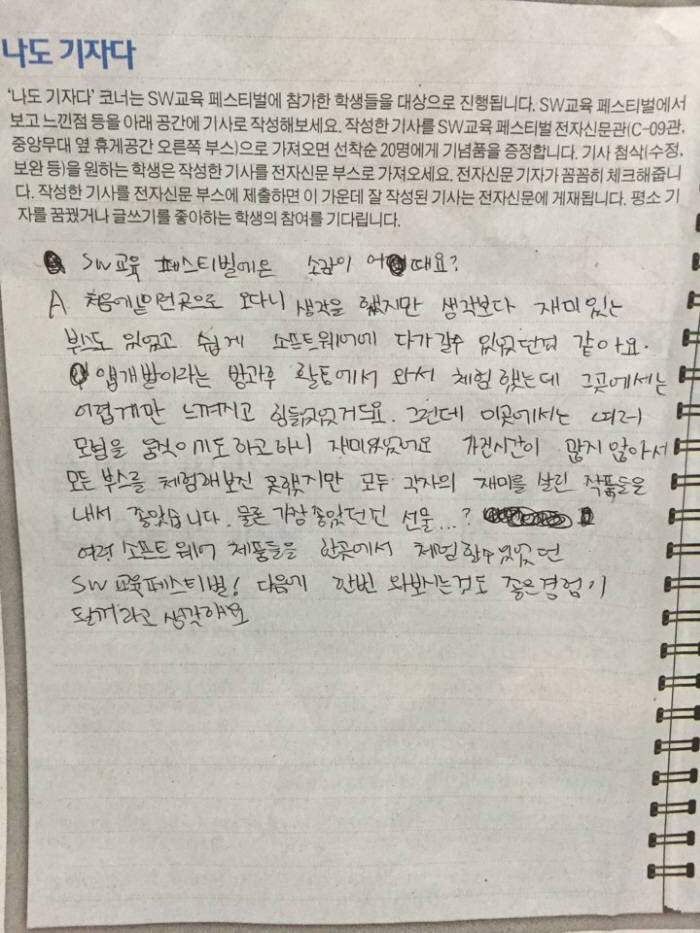 나도 기자다
'나도 기자다' 코너는 SW교육 페스티벌에 참가한 학생들을 대상으로 진행됩니다. SW교육 페스티벌에서
보고 느낀점 등을 아래 공간에 기사로 작성해보세요. 작성한 기사를 SW교육 페스티벌 전자신문관(C-09관,
중앙무대 옆 휴게공간 오른쪽 부스)으로 가져오면 선착순 20명에게 기념품을 증정합니다. 기사 첨삭(수정,
보완 등)을 원하는 학생은 작성한 기사를 전자신문 부스로 가져오세요. 전자신문 기자가 꼼꼼히 체크해줍니
다. 작성한 기사를 전자신문 부스에 제출하면 이 가운데 잘 작성된 기사는 전자신문에 게재됩니다. 평소 기
자를 꿈꿨거나 글쓰기를 좋아하는 학생의 참여를 기다립니다.
SW 교육 페스티벌에은 소감이 어때요?
A 처음에 이런곳으로 오다니 생각을 했지만 생각보다 재미있는
부스도 있었고 쉽게 소프트웨어에 다가갈수 있었던것 같아요.
앱개발이라는 방과후 활동에서 와서 체험했는데 그곳에서는
어렵게만 느껴지고 힘들었었거든요. 그런데 이곳에서는 여러
모형을 움직이기도하고하니 재미있었어요 시간이 많지 않아서
모든 부스를 체험해보진 못했지만 모두 각자의 재미를 살린 작품들을
내서 좋았습니다. 물론 가장좋았던건 선물...?
여러 소프트웨어 제품들을 한곳에서 체험할수있었던
SW 교육페스티벌! 다음에 한번 와보시는것도 좋은경험이
될꺼라고 생각해요